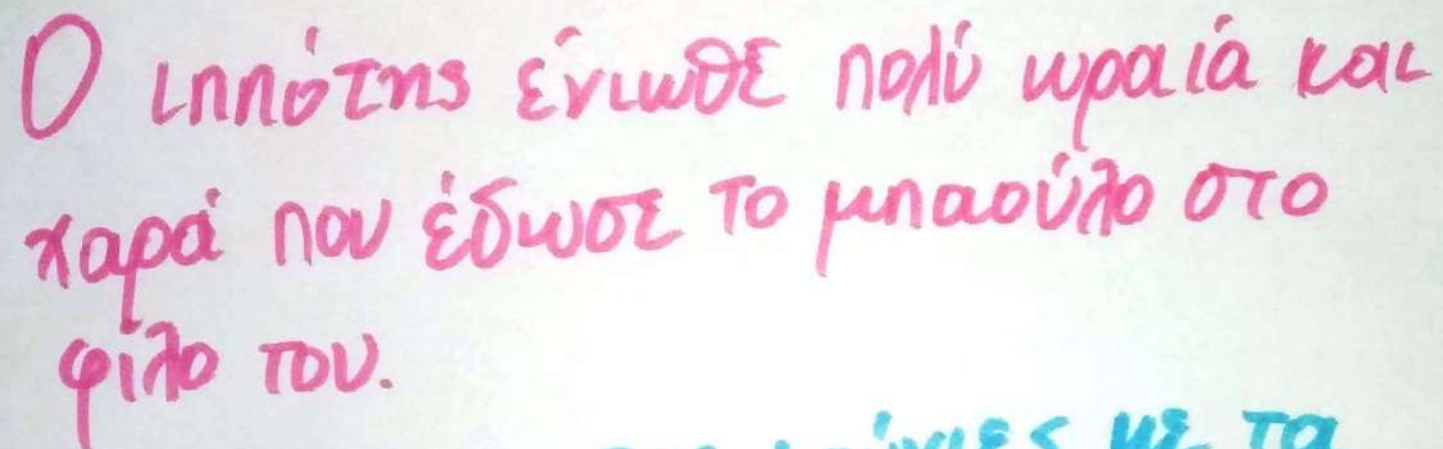 Ο ιππότης ένιωθε πολύ ωραία και
χαρά που έδωσε το μπαούλο στο
φίλο του.
με τα